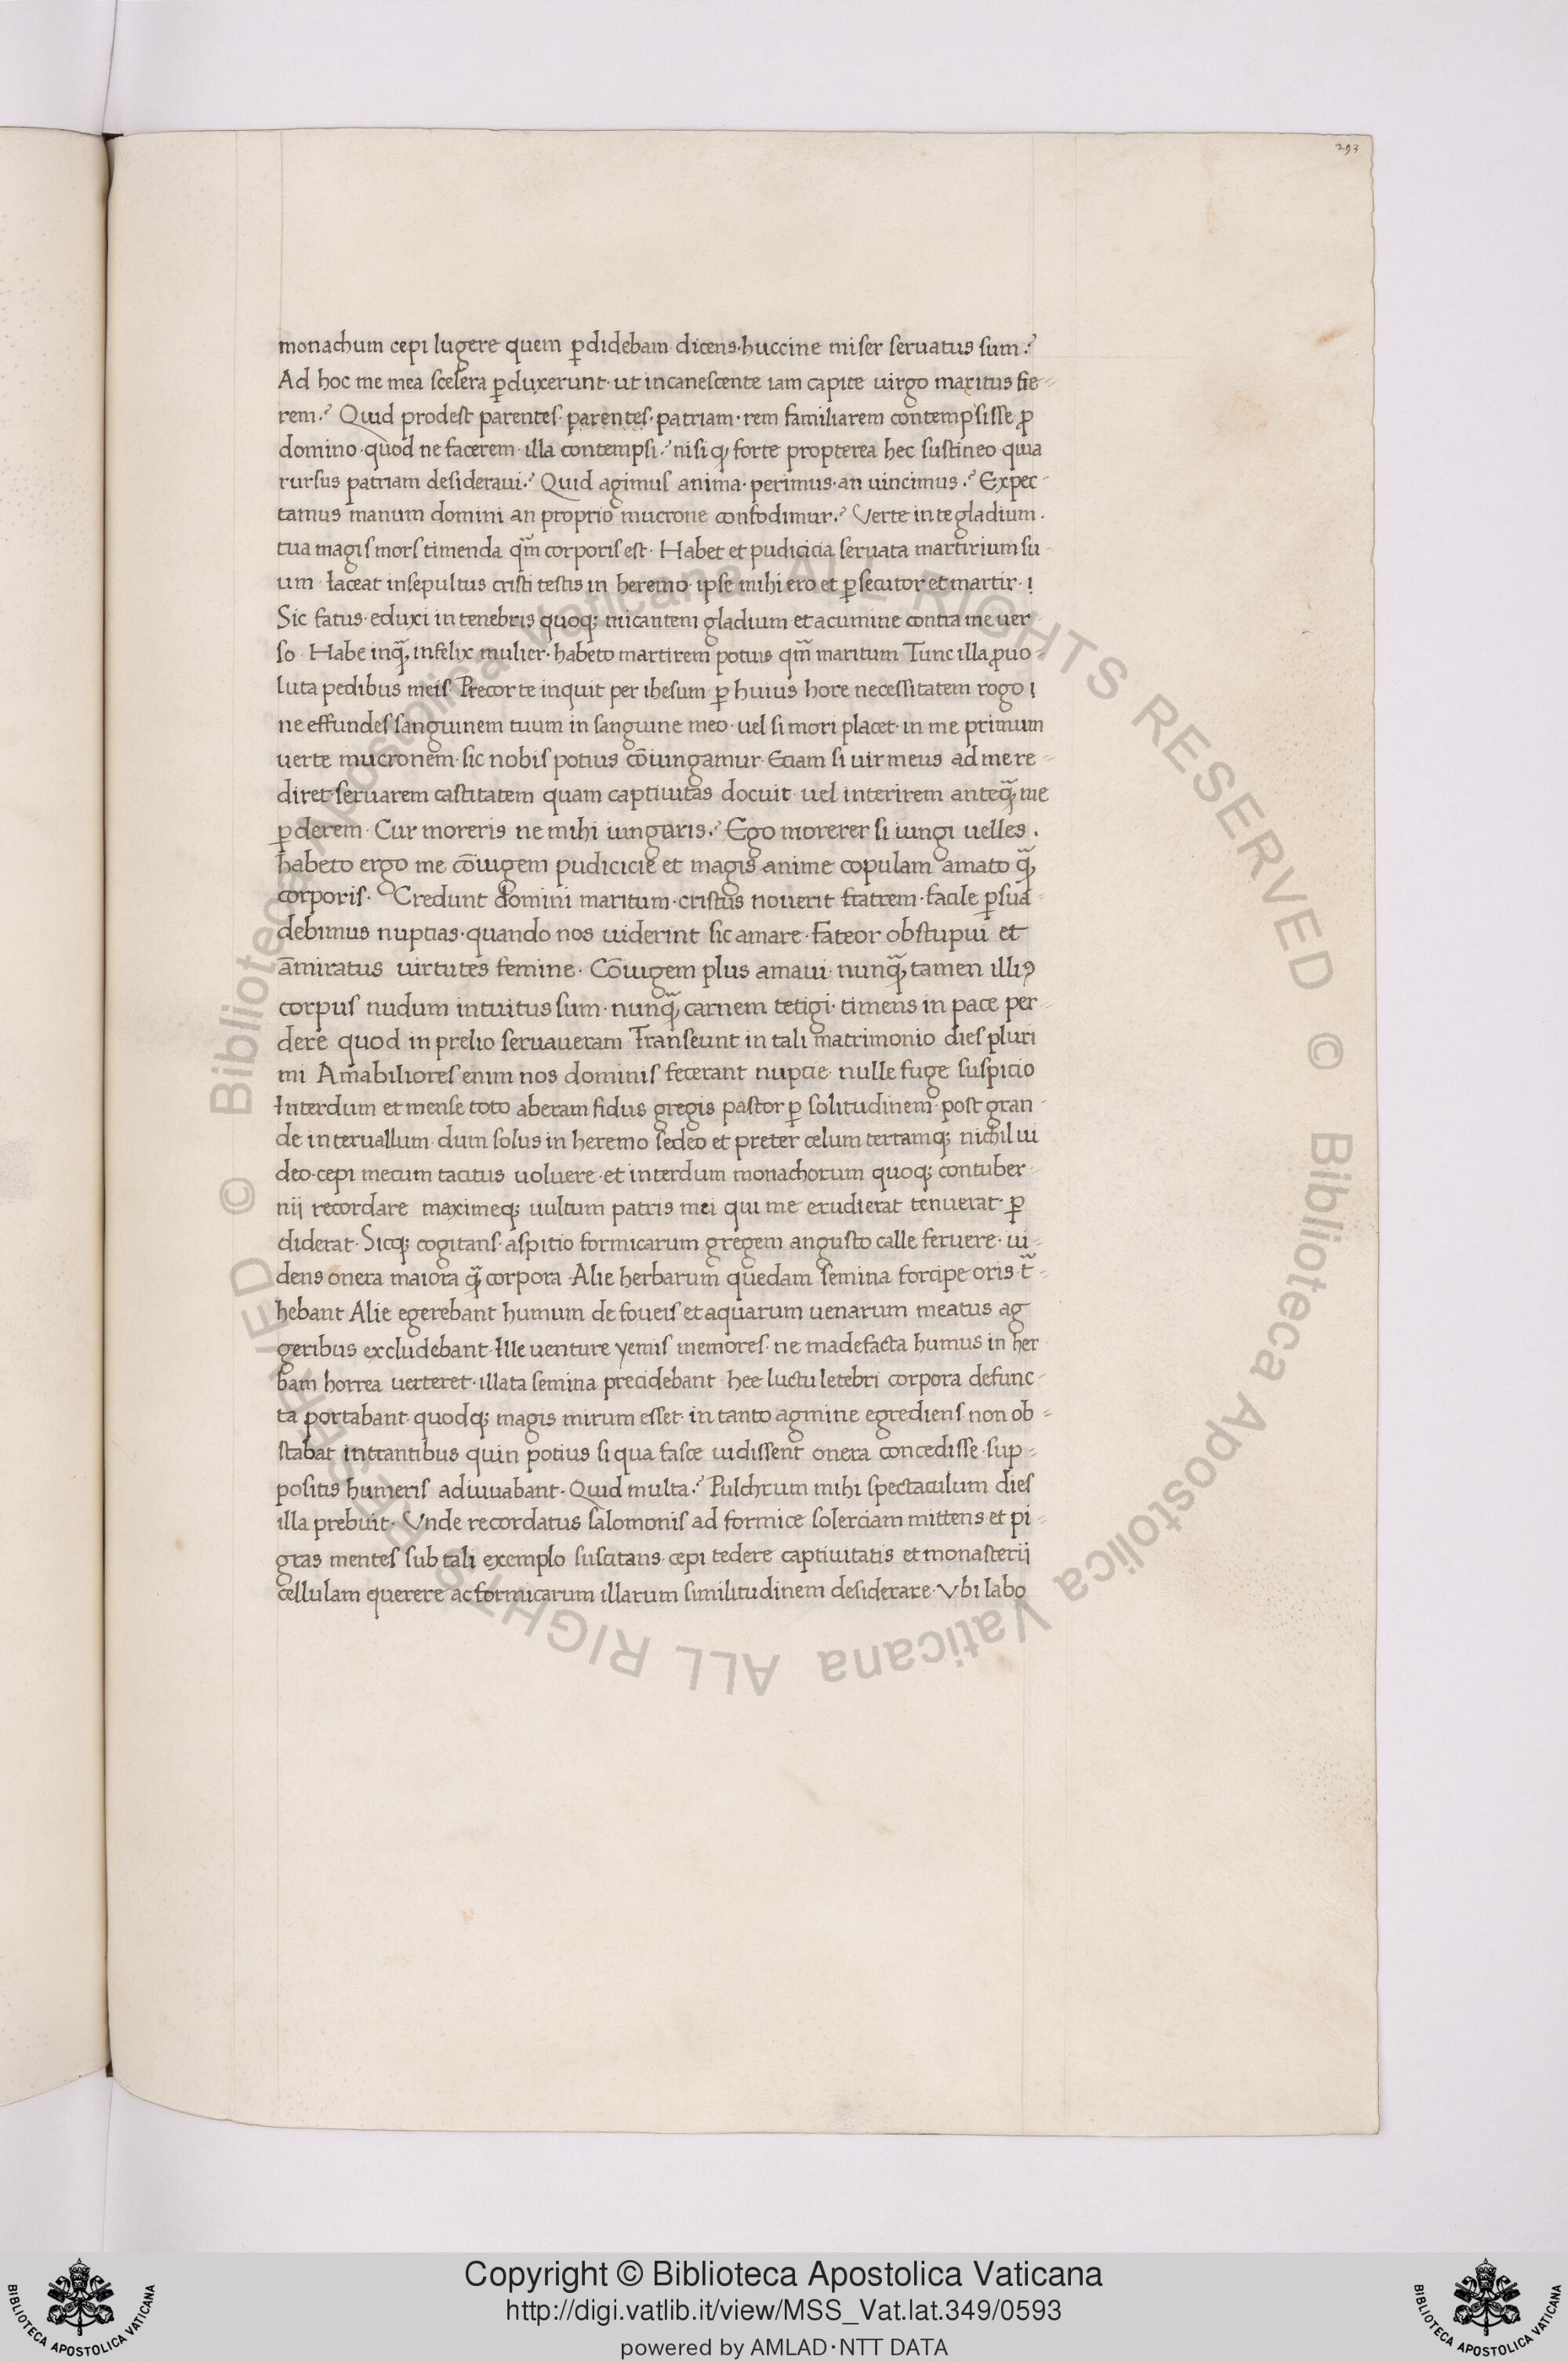 293
monachum cepi lugere quem ꝑdidebam dicens·huccine miser seruatus sum?
Ad hoc me mea scelera ꝑduxerunt·ut incanescente iam capite uirgo maritus fie-
rem? Quid prodest parentes·parentes·patriam·rem familiarem contempsisse ꝓ
domino·quod ne facerem·illa contempsi? nisi ꝙ forte propterea hec sustineo quia
rursus patriam desideraui? Quid agimus anima·perimus·an uincimus? Expec-
tamus manum domini an proprio mucrone confodimur? Verte in te gladium·
tua magis mors timenda qm̃ corporis est· Habet et pudicicia seruata martirium su-
um·Iaceat insepultus cristi testis in heremo·ipse mihi ero et ꝑsecutor et martir·
Sic fatus·eduxi in tenebris quoq; micantem gladium et acumine contra me uer
so· Habe inq̃, infelix mulier·habeto martirem potuis qm̃ maritum Tunc illa ꝓuo-
luta pedibus meis· Precor te inquit per ihesum·ꝑ huius hore necessitatem rogo
ne effundes sanguinem tuum in sanguine meo·uel si mori placet·in me primum
uerte mucronem·sic nobis potius cōiungamur·Etiam si uir meus ad me re-
diret·seruarem castitatem quam captiuitas docuit·uel interirem anteq̃, me
ꝑderem· Cur moreris ne mihi iungaris? Ego morerer si iungi uelles·
habeto ergo me cōiugem pudicicie et magis anime copulam amato q̃,
corporis· Credunt domini maritum·cristus nouerit fratrem·facile ꝑsua-
debimus nuptias·quando nos uiderint sic amare·Fateor obstupui et
āmiratus uirtutes femine· Cōiugem plus amaui·nunq̃, tamen illiꝰ
corpus nudum intuitus sum·nunq̃, carnem tetigi·timens in pace per-
dere quod in prelio seruaueram·Transeunt in tali matrimonio dies pluri
mi Amabiliores enim nos dominis fecerant nuptie·nulle fuge suspicio
Interdum et mense toto aberam fidus gregis pastor ꝑ solitudinem·post gran-
de interuallum·dum solus in heremo sedeo et preter celum terramq; nichil ui
deo·cepi mecum tacitus uoluere·et interdum monachorum quoq; contuber-
nii recordare maximeq; uultum patris mei qui me erudierat tenuerat·ꝑ
diderat·Sicq; cogitans·aspitio formicarum gregem angusto calle feruere·ui-
dens onera maiora q̃, corpora·Alie herbarum quedam semina forcipe oris·t̃-
hebant Alie egerebant humum de foueis et aquarum uenarum meatus ag
geribus excludebant·Ille uenture yemis memores·ne madefacta humus in her
bam horrea uerteret·illata semina precidebant·hee luctu letebri corpora defunc-
ta portabant·quodq; magis mirum esset·in tanto agmine egrediens non ob-
stabat intrantibus quin potius si qua fasce uidissent onera concedisse·sup-
positis humeris adiuuabant·Quid multa? Pulchrum mihi spectaculum dies
illa prebuit· Vnde recordatus salomonis ad formice solerciam mittens·et pi-
gras mentes sub tali exemplo suscitans·cepi tedere captiuitatis et monasterii
cellulam querere ac formicarum illarum similitudinem desiderare·Vbi labo
© Biblioteca Apostolica Vaticana ALL RIGHTS RESERVED © Biblioteca Apostolica Vaticana ALL RIGHTS RESERVED
Copyright © Biblioteca Apostolica Vaticana
http://digi.vatlib.it/view/MSS_Vat.lat.349/0593
powered by AMLAD·NTT DATA
BIBLIOTECA APOSTOLICA VATICANA
BIBLIOTECA APOSTOLICA VATICANA